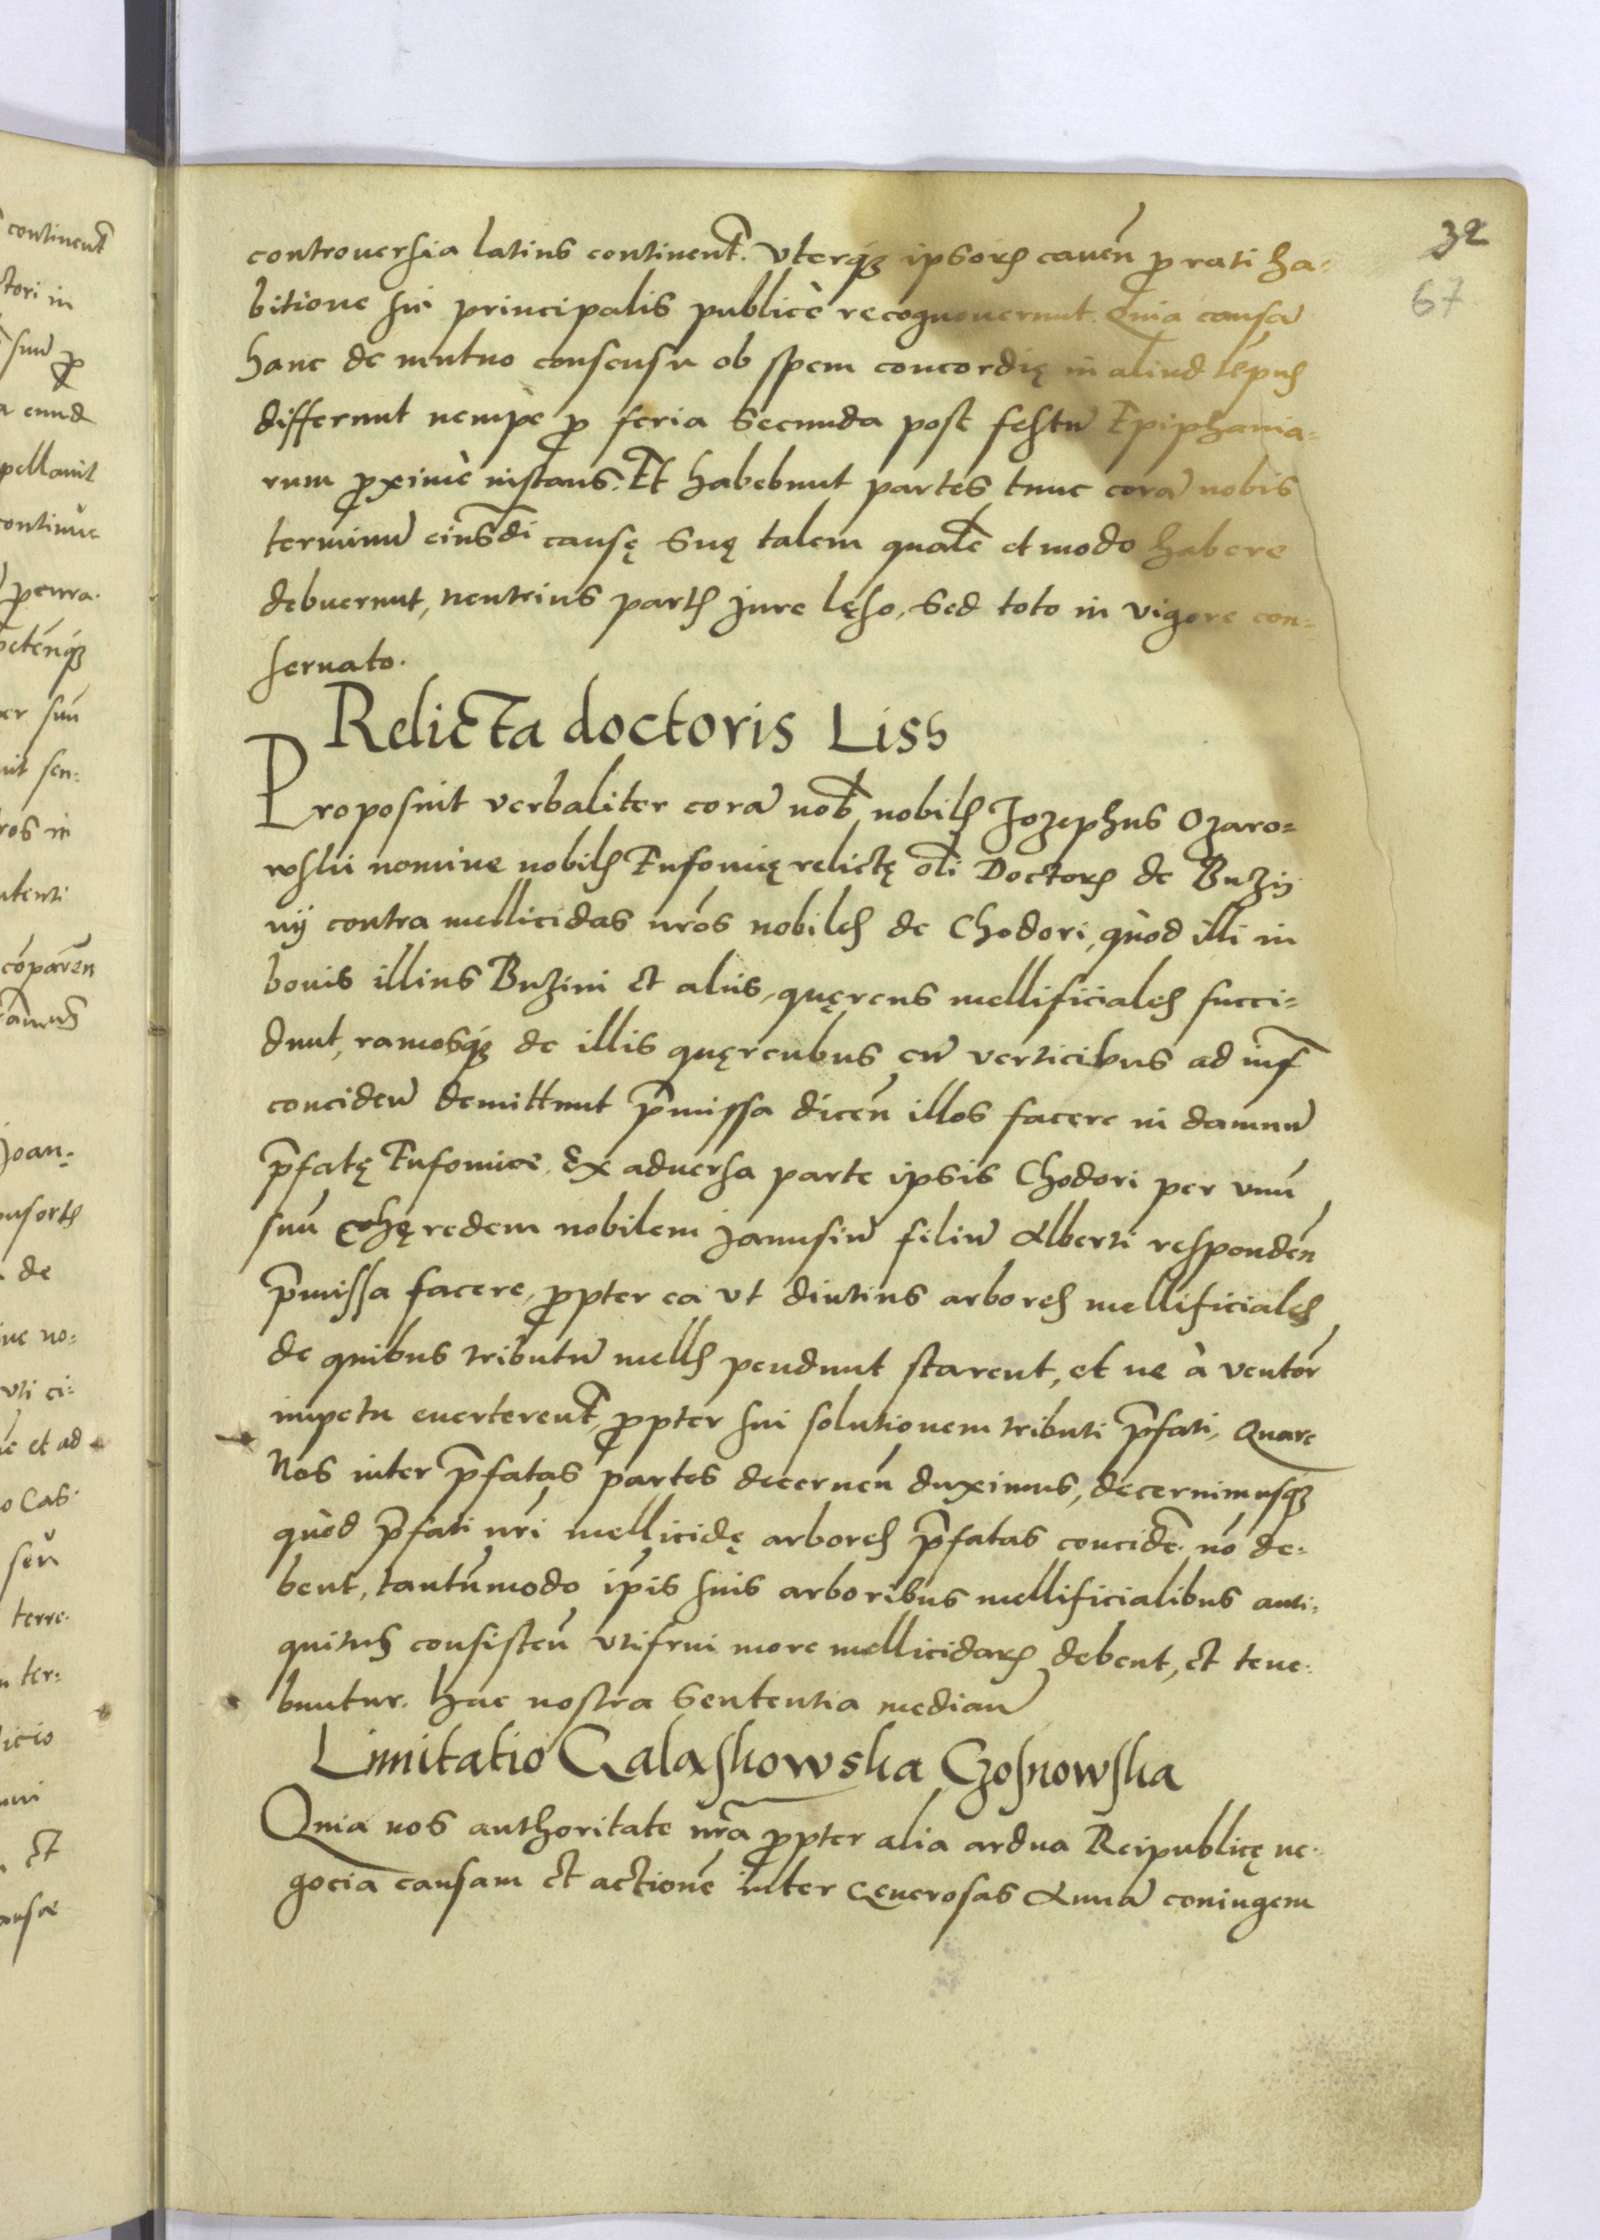 32
67
controuersia latius continent. Vterq₃ ipsor⁊ cauen̄ p rati ha=
bitione sui principalis publicè recognouerunt. Quia causā
hanc de mutuo consensu ob spem concordię in aliud tēpus
differunt nempe p feria Secunda post festū Epiphania=
rum pximè instans. Et habebunt partes tunc corā nobis
terminū eiusdi causę suę talem qualē et modo habere
debuerunt, neutrius partis jure lęso, Sed toto in vigore con=
seruato.
Relicta doctoris Liss
Proposuit verbaliter corā nob nobilis Jozephus Ozaro=
wskii nomine nobilis Eufomię relictę oli Doctoris de Buzij
nij contra mellicidas nros nobiles de Chodori, quòd illi in
bonis illius Buzini et aliis, quęrcus mellificiales succi=
dunt, ramosq₃ de illis quęrcubus cū verticibus ad inf
concidēn demittunt pmissa dicen̄ illos facere in damnū
pfatę Eufomiæ. Ex aduersa parte ipsis Chodori per vnū
suū cohęredem nobilem Janusiū filiū Alberti responden̄
pmissa facere, ppter ea vt diutius arbores mellificiales
de quibus tributū mellis pendunt starent, et ne à ventor
impetu euerterent, ppter sui solutionem tributi pfati, Quare
Nos inter pfatas partes decernen̄ duximus, decernimusq₃
quòd pfati nri mellicidę arbores pfatas concidē nō de=
bent, tantummodo ipis suis arboribus mellificialibus anti=
quitus consisten̄ vtifrui more mellicidar⁊ debent, et tene=
buntur. hac nostra Sententia median̄
Limitatio Galaskowska Gosnowska
Quia nos authoritate nra ppter alia ardua Reipublicę ne=
gocia causam et actionē inter Generosas Annā coniugem